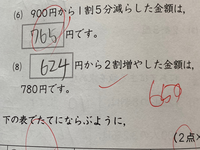 (6) 900円から1割5分減らした金額は,
765 円です。
(8) 624 円から2割増やした金額は,
780円です。 650
下の表でたてにならぶように,
(2点×